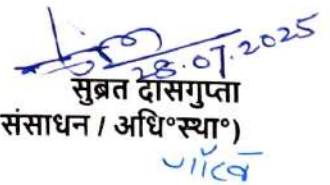 28.07.2025
सुब्रत दासगुप्ता
संसाधन / अधि°स्था°)